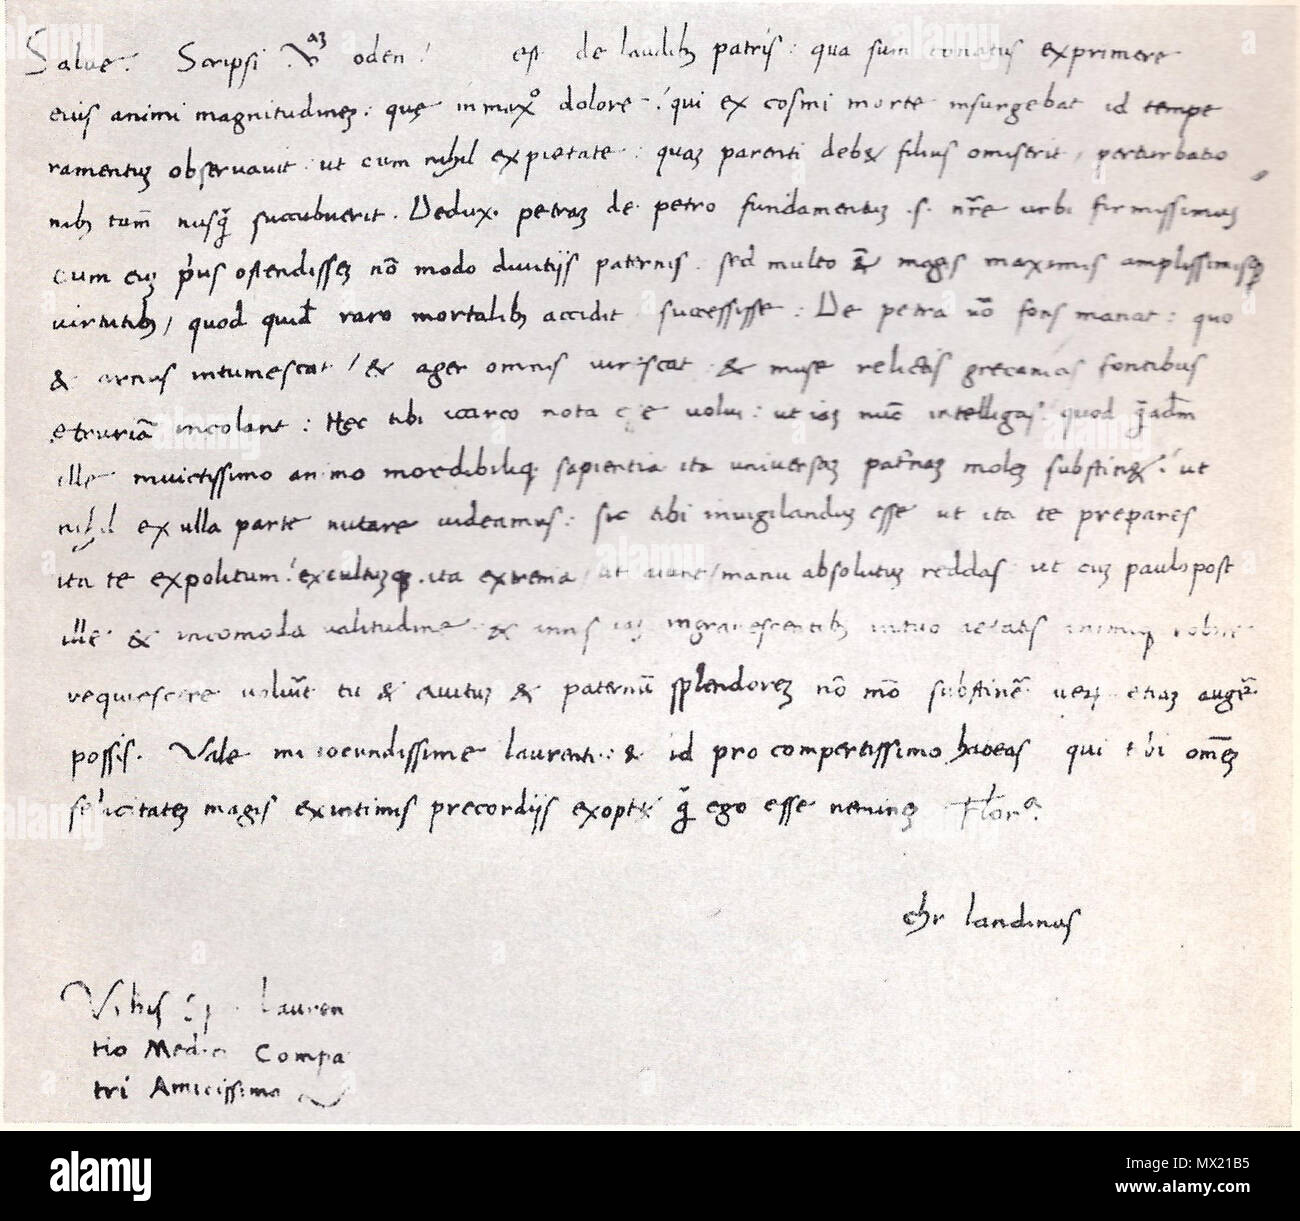 Salve. Scripsi oden est de laudibꝫ patris: qua sum conatus exprimere
eius animi magnitudineꝫ: que in maxº dolore qui ex cosmi morte insurgebat id tempe
ramentuꝫ observavit ut cum nihil ex pietate: quaꝫ parenti debꝫ filius omiserit perturbatio
nibꝫ tam̄ nusq̄ succubuerit. Dedux petraꝫ de petro fundamentuꝫ .s. nr̄e urbi firmissimuꝫ
cum ei prius ostendisseꝫ nō modo divitijs paternis sed multo magis maximis amplissimisqꝫ
virtutibꝫ, quod quidē raro mortalibꝫ accidit successisse: De petra nō fons manat: quo
& arnus intumescat & ager omnis viriscat & muse relictis grecanicis fontibus
etruriā incolant: Hec tibi icarco nota volui: ut iaꝫ nūc intelligas quod
ille invictissimo animo incredibiliqꝫ sapientia ita universaꝫ patr̄naꝫ moleꝫ substinꝫ ut
nihil ex ulla parte nutare videamus: sic tibi invigilanduꝫ esse ut ita te prepares
ita te expolitum excultuꝫqꝫ ita extrema ut aiunt manu absolutuꝫ reddas ut cuꝫ paulo post
ille & incomoda valitudine & annis iaꝫ ingravescentibꝫ
requiescere tu & avituꝫ & paternū splendoreꝫ nō mō substinē etiaꝫ augē
possis. Vale mi iocundissime laurenti: & id pro compertissimo habeas qui tibi omēꝫ
felicitateꝫ magis ex intimis precordijs exoptꝫ q̄ ego esse nemineꝫ Flor.
chr landinus
Lauren
tio Medici Compa
tri Amicissimo
alamy
Image ID: MX21B5
www.alamy.com